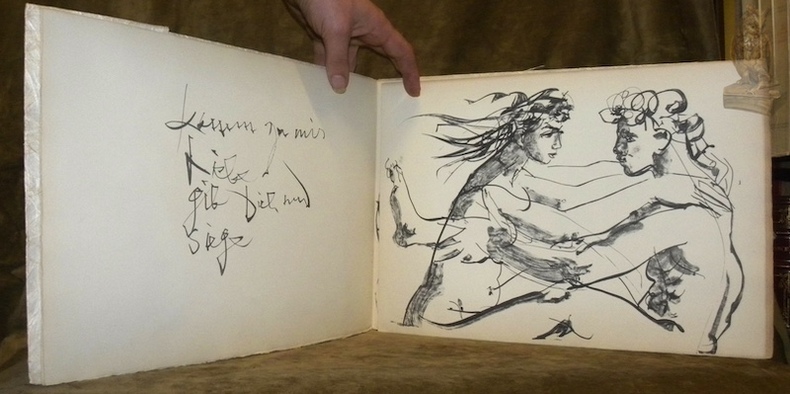 komm zu mir
Liebe
gib Dich und
Siege